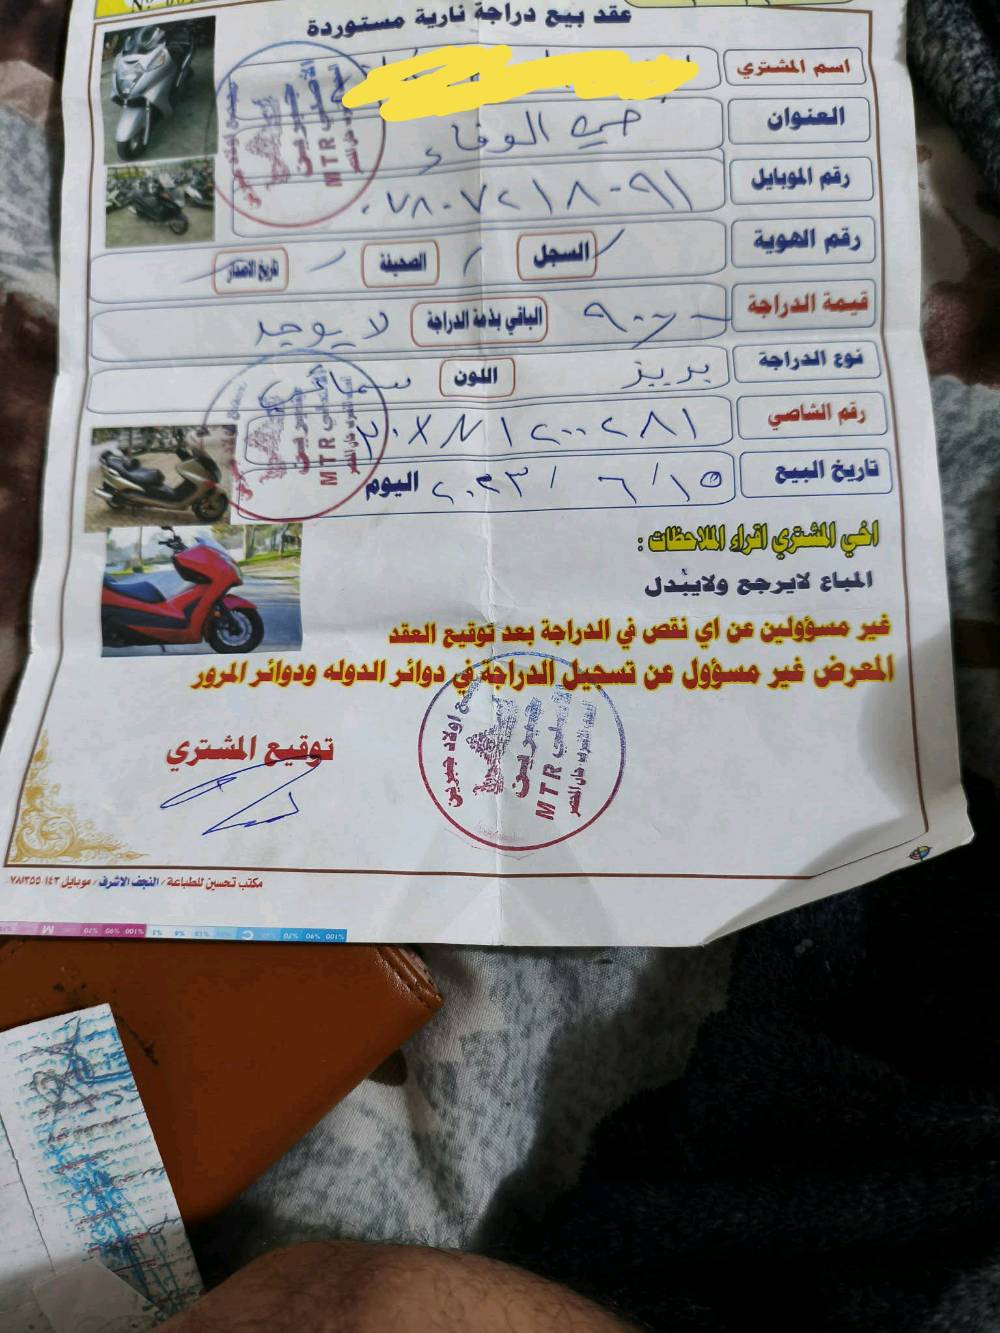 عقد بيع دراجة نارية مستوردة
اسم المشتري
العنوان حي الوفاء
رقم الموبايل ٠٧٨٠٧٢١٨٠٩١
رقم الهوية السجل / الصحيفة / تاريخ الاصدار
قيمة الدراجة الباقي بذمة الدراجة لا يوجد
نوع الدراجة بريز اللون سمائي
رقم الشاصي
تاريخ البيع ١٥ / ٦ / ٢٠٢٣ اليوم
اخي المشتري اقراء الملاحظات :
المباع لايرجع ولايبُدل
غير مسؤولين عن اي نقص في الدراجة بعد توقيع العقد
المعرض غير مسؤول عن تسجيل الدراجة في دوائر الدوله ودوائر المرور
توقيع المشتري
MTR
MTR
MTR
مكتب تحسين للطباعة / النجف الاشرف / موبايل